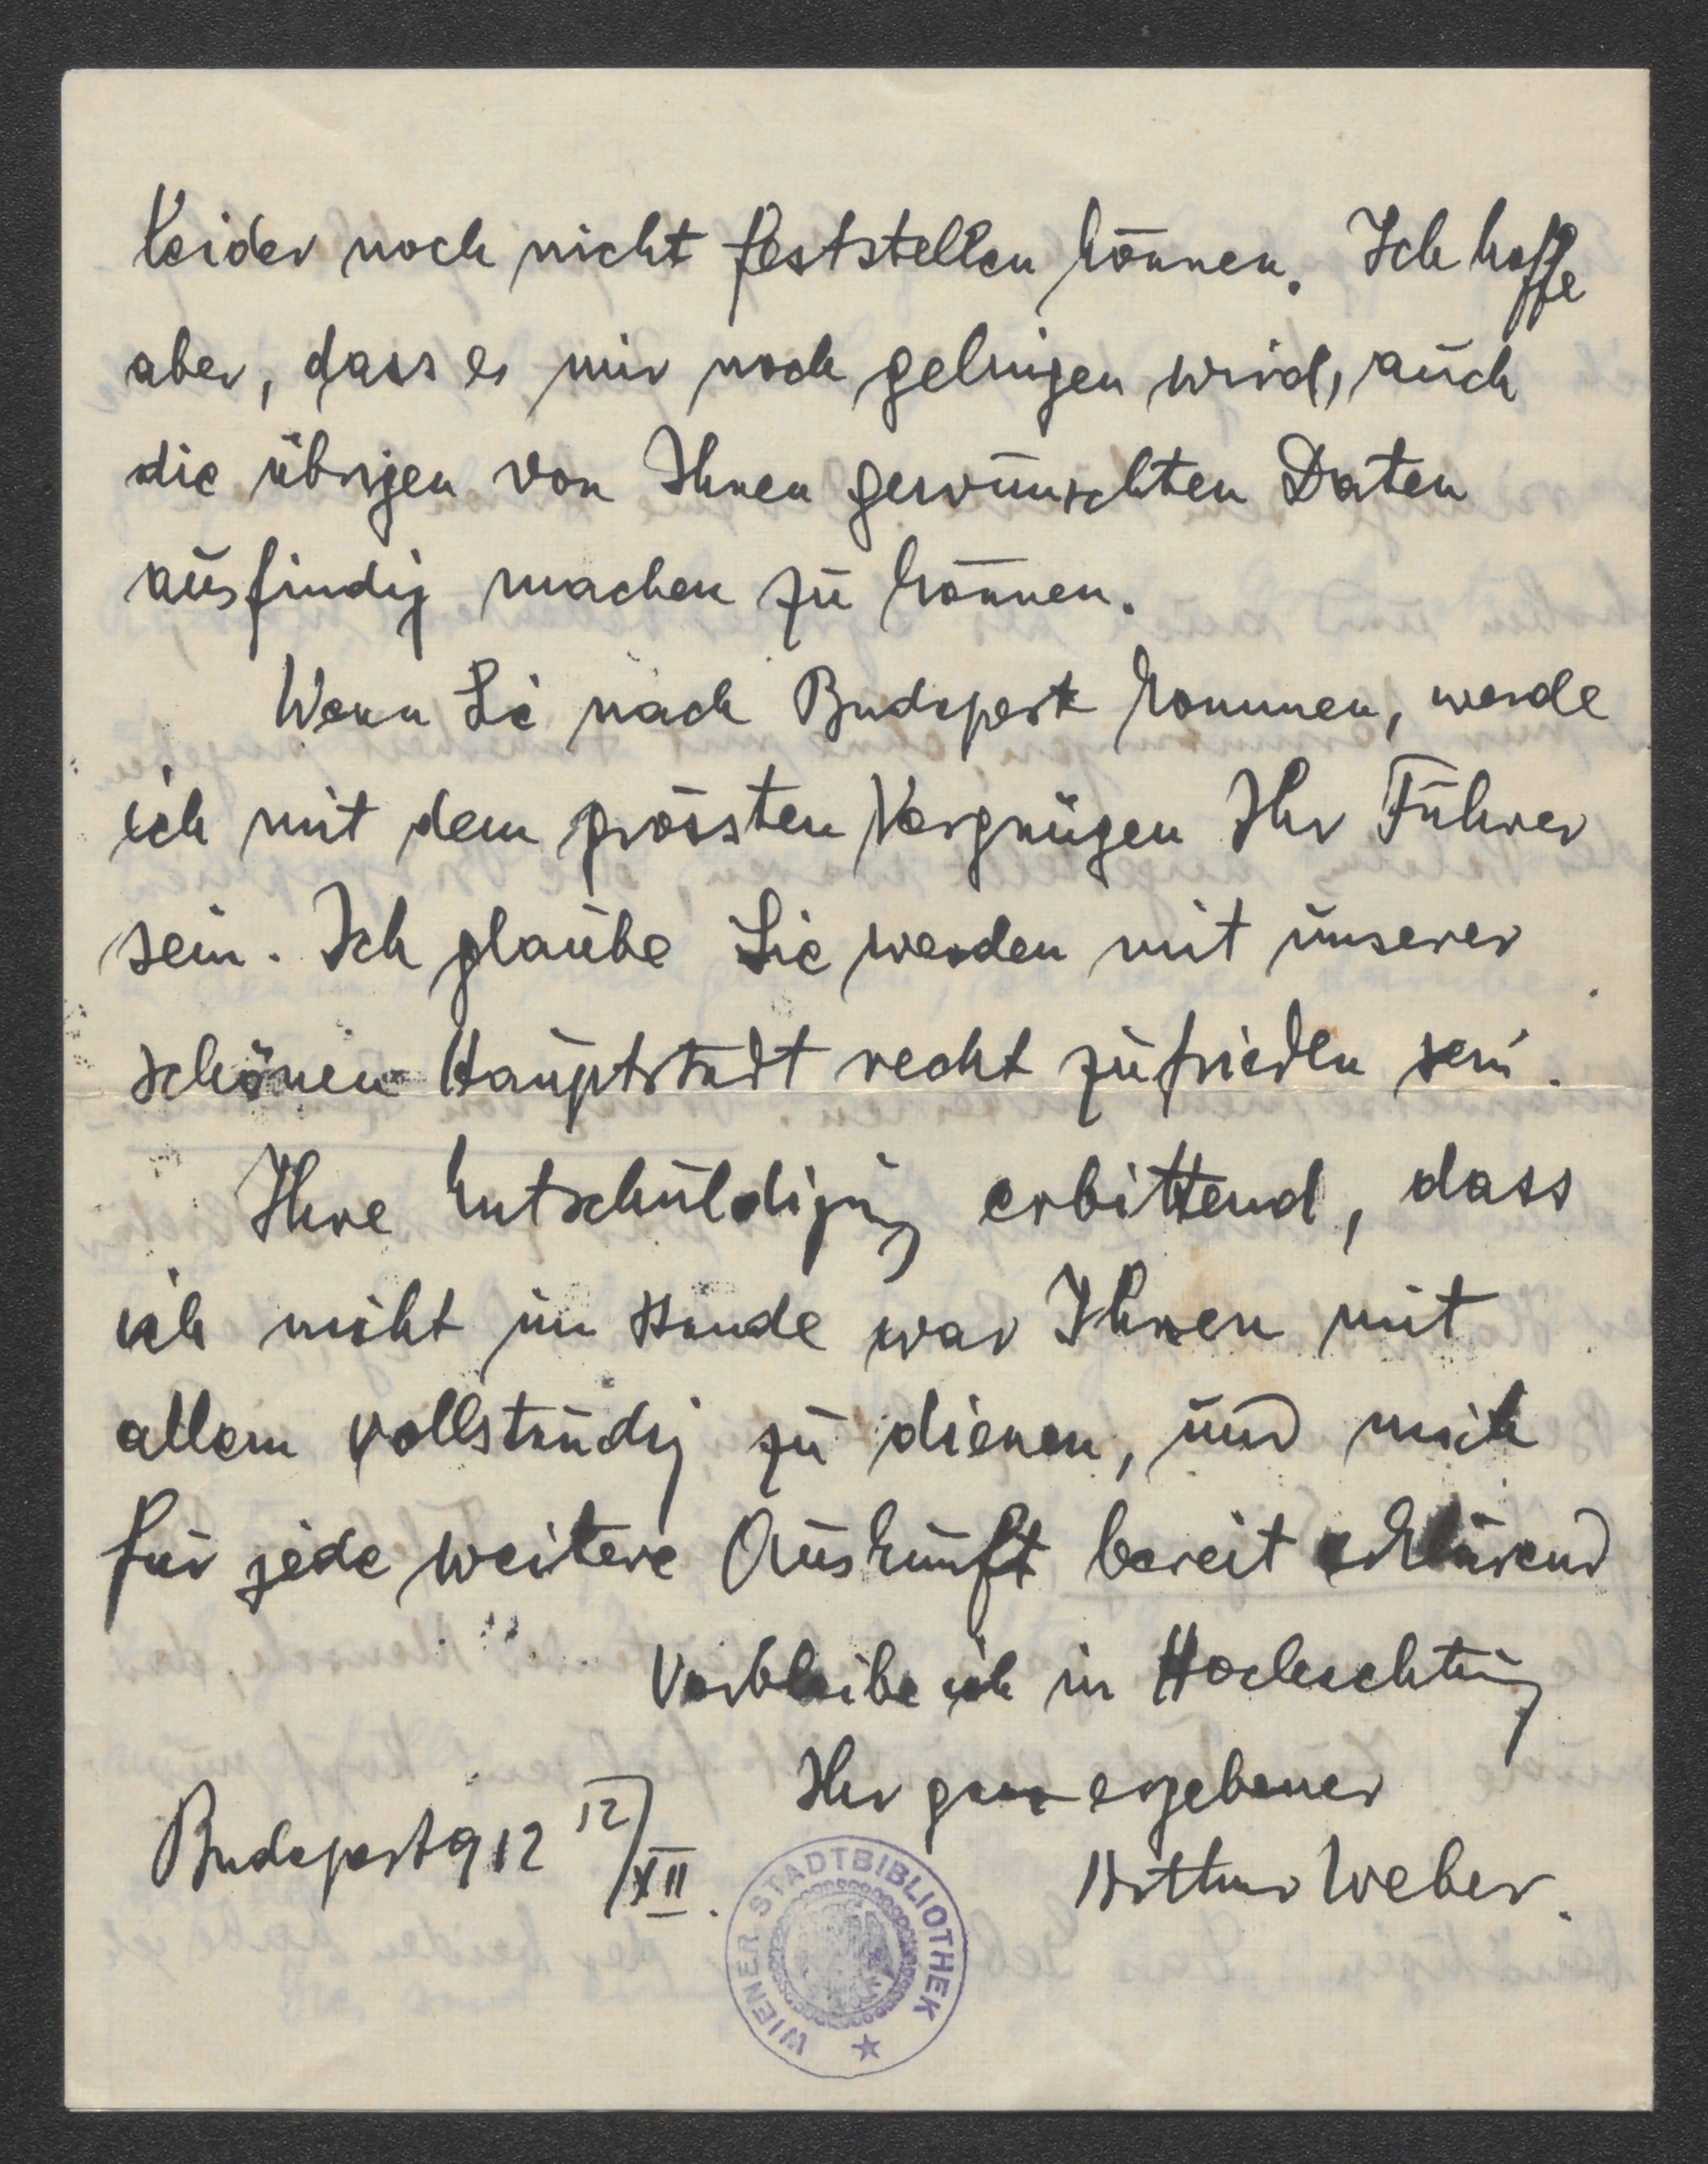 leider noch nicht feststellen können. Ich hoffe
aber, dass es mir noch gelingen wird, auch
die übrigen von Ihnen gewünschten Daten
ausfindig machen zu können.
Wenn Sie nach Budapest kommen, werde
ich mit dem grössten Vergnügen Ihr Führer
sein. Ich glaube Sie werden mit unserer
schönen Hauptstadt recht zufrieden sein.
Ihre Entschuldigung erbittend, dass
ich nicht im Stande war Ihnen mit
allem vollständig zu dienen, und mich
für jede weitere Auskunft bereit erklärend
Verbleibe ich in Hochachtung
Ihr ganz ergebener
Budapest 912 12/XII.
Arthur Weber.
WIENER STADTBIBLIOTHEK